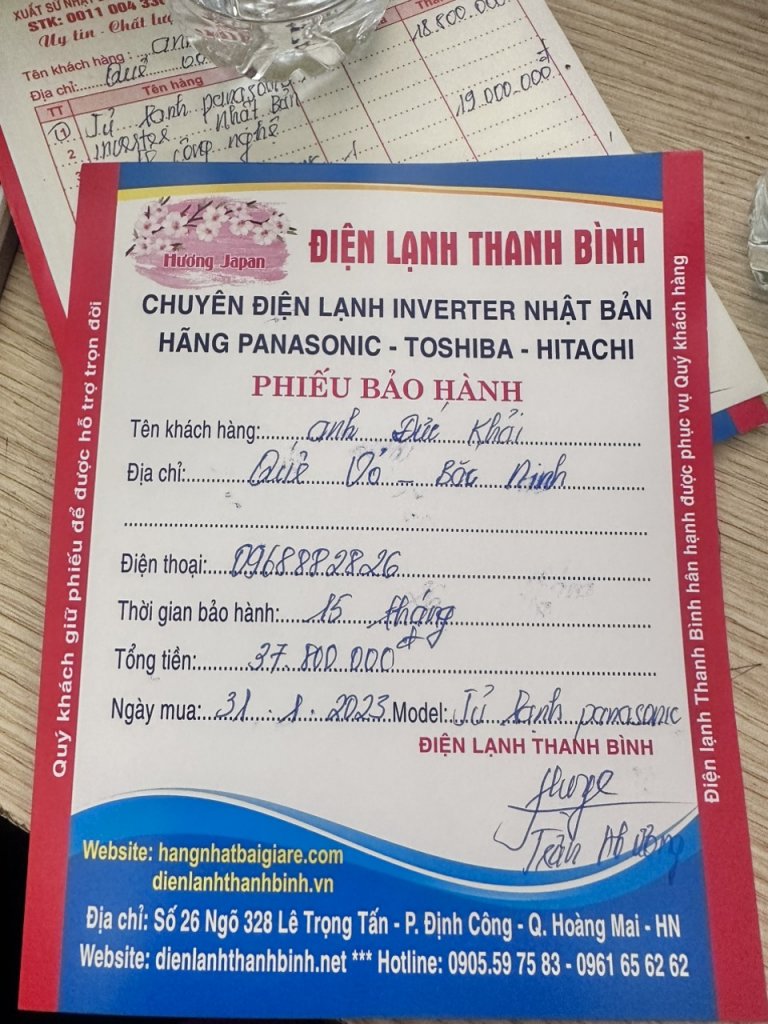 XUẤT SỨ NHẬT
STK: 0011 004 330
Uy tín - Chất lượ
18.800.000
Tên khách hàng: anh
Địa chỉ: Quế Võ
TT Tên hàng
1 Tủ lạnh panasonic
19 000.000đ
2 inverter Nhật Bản
công nghệ
Hương Japan
ĐIỆN LẠNH THANH BÌNH
CHUYÊN ĐIỆN LẠNH INVERTER NHẬT BẢN
HÃNG PANASONIC - TOSHIBA - HITACHI
PHIẾU BẢO HÀNH
Tên khách hàng: anh Đức Khải
Địa chỉ: Quế Võ - Bắc Ninh
Điện thoại: 0968882826
Thời gian bảo hành: 15 tháng
Tổng tiền: 37.800.000đ
Ngày mua: 31.1.2023 Model: Tủ lạnh panasonic
ĐIỆN LẠNH THANH BÌNH
Trần
Website: hangnhatbaigiare.com
dienlanhthanhbinh.vn
Địa chỉ: Số 26 Ngõ 328 Lê Trọng Tấn - P. Định Công - Q. Hoàng Mai - HN
Website: dienlanhthanhbinh.net *** Hotline: 0905.59 75 83 - 0961 65 62 62
Quý khách giữ phiếu để được hỗ trợ trọn đời
Điện lạnh Thanh Bình hân hạnh được phục vụ Quý khách hàng